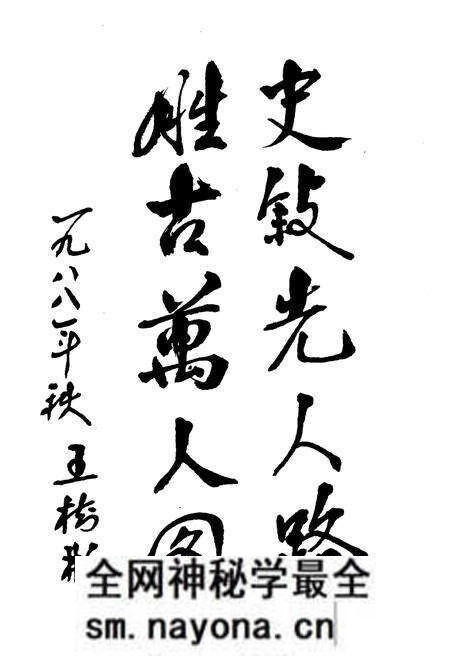 史敘先人路
胜古萬人图
一九八八年秋 王樹
全网神秘学最全
sm.nayona.cn